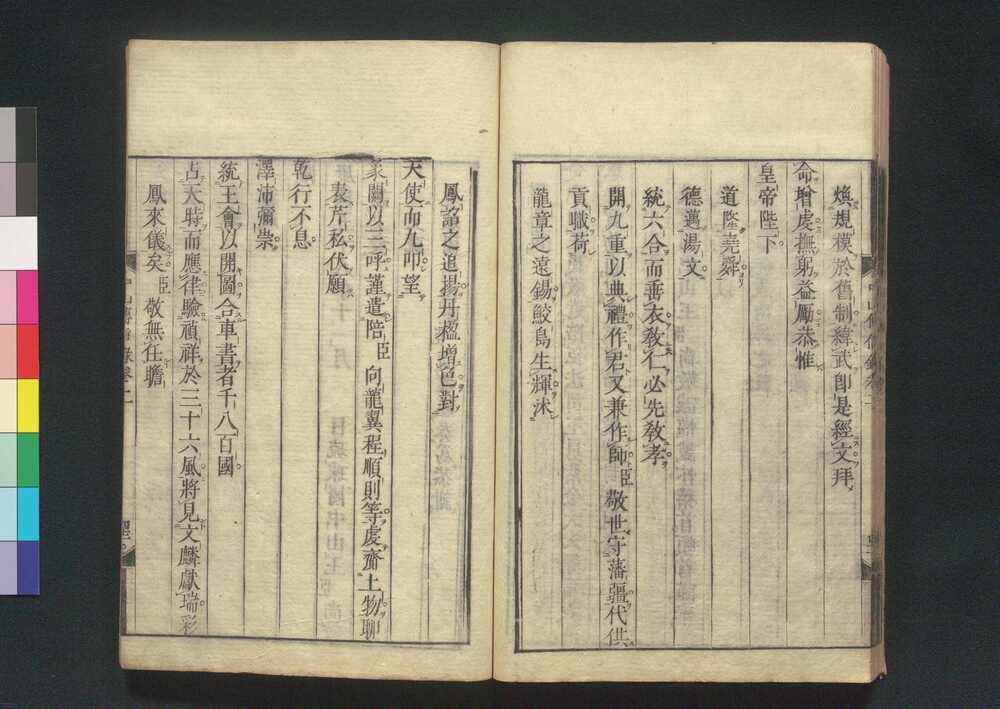 煥規模於舊制緯武卽是經文拜
命增虔撫躬益勵恭惟
皇帝陛下
道隆堯舜
德邁湯文
統六合而垂衣敎仁必先敎孝
開九重以典禮作君又兼作師臣敬世守藩疆代供
貢職荷
龍章之遠錫鮫島生輝沐
鳳詔之追揚丹楹增色對
天使而九叩望
象闕以三呼謹遣陪臣向龍翼程順則等虔齎土物聊
表芹私伏願
乾行不息
澤沛彌崇
統王會以開圖合車書者千八百國
占天時而應律驗禎祥於三十六風將見文麟獻瑞彩
鳳來儀矣臣敬無任瞻